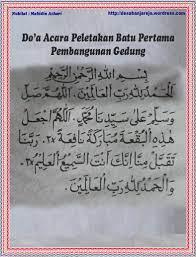 Nobitat : Mahidin Azhari
http://desabanjarejo.wordpress.com
Do'a Acara Peletakan Batu Pertama
Pembangunan Gedung
بِسْمِ اللهِ الرَّحْمٰنِ الرَّحِيْمِ
اَلْحَمْدُ لِلّٰهِ رَبِّ الْعَالَمِيْنَ. اَللّٰهُمَّ صَلِّ
وَسَلِّمْ عَلَى سَيِّدِنَا مُحَمَّدٍ. اَللّٰهُمَّ اجْعَلْ
هٰذِهِ الْبُقْعَةَ مُبَارَكَةً نَافِعَةً ٣x. رَبَّنَا
تَقَبَّلْ مِنَّا اِنَّكَ اَنْتَ السَّمِيْعُ الْعَلِيْمُ ٣x.
وَالْحَمْدُ لِلّٰهِ رَبِّ الْعَالَمِيْنَ.